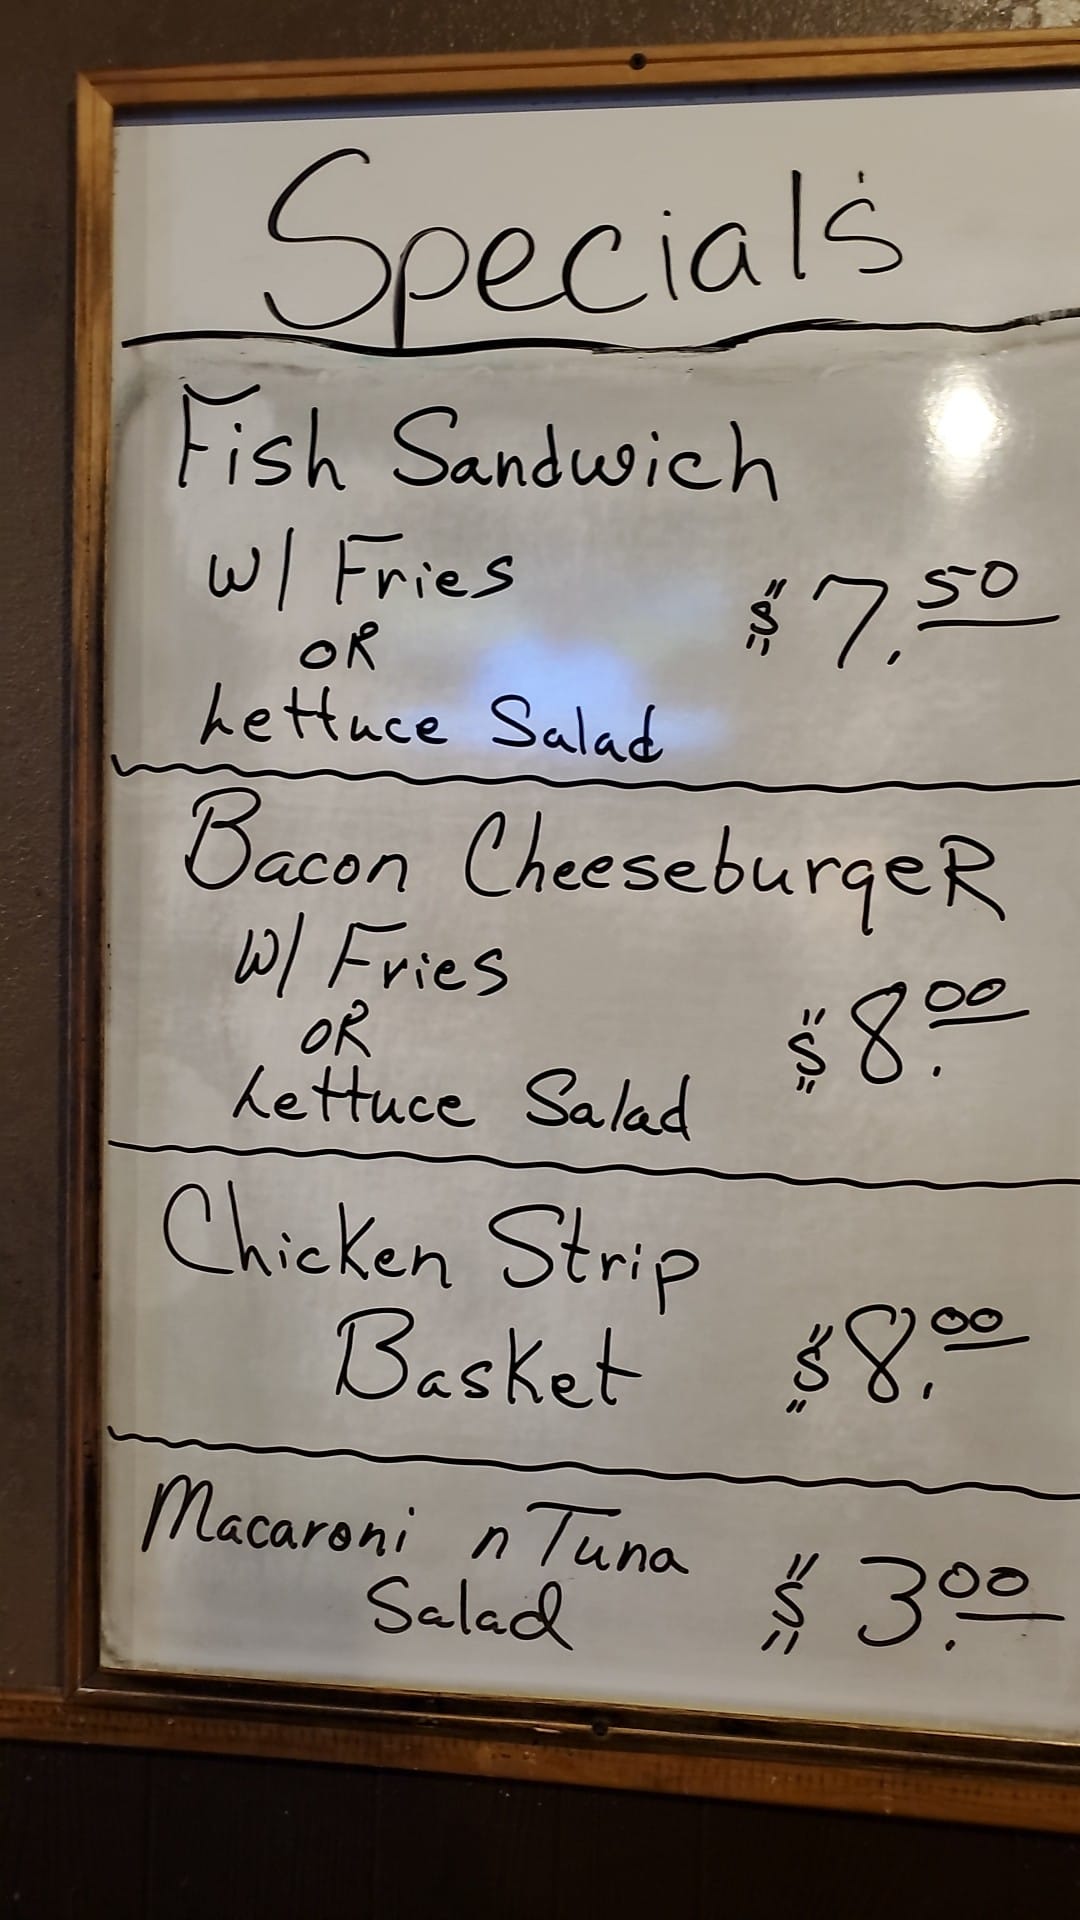 Special's
Fish Sandwich
w/ Fries
OR
$7.50
Lettuce Salad
Bacon CheeseburgeR
w/ Fries
OR
$8.00
Lettuce Salad
Chicken Strip
Basket $8.00
Macaroni n Tuna
Salad $3.00